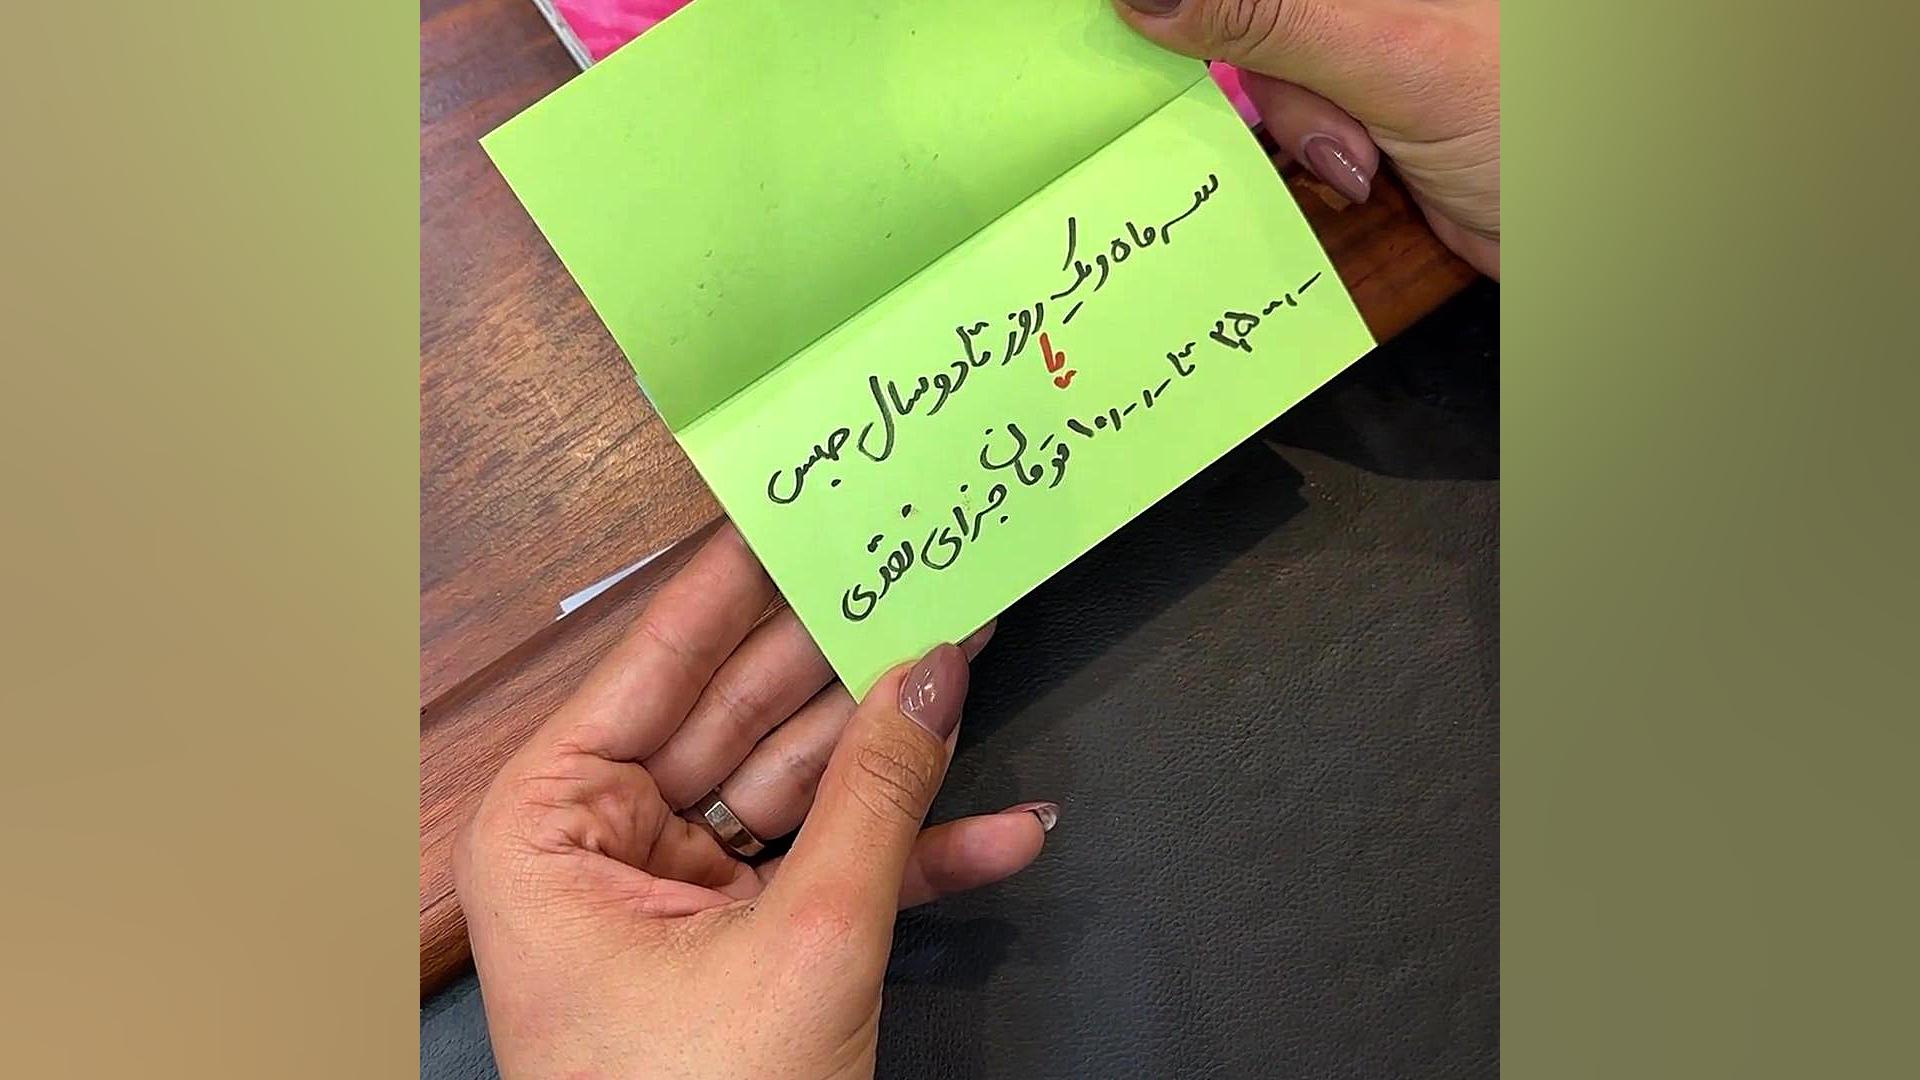 سه ماه و یک روز تا دو سال حبس
یا
تا تومان جزای نقدی